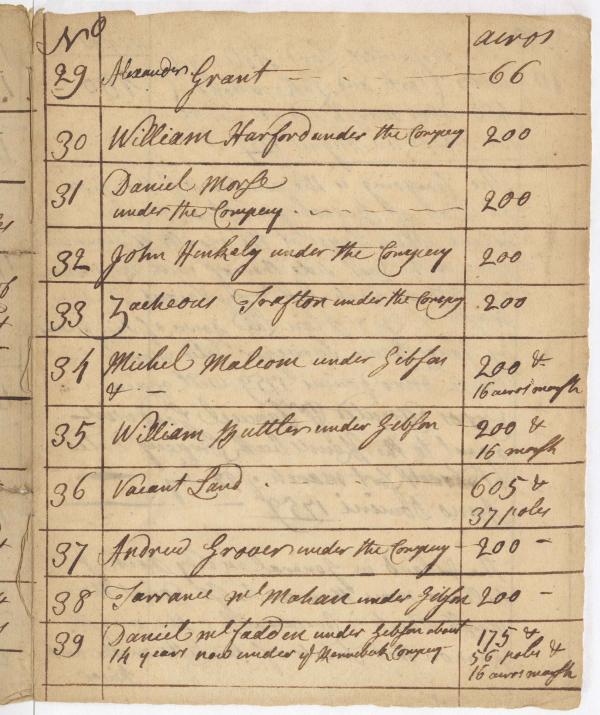 No acros
29 Alexander Grant 66
30 William Harford under the Compeny 200
31 Daniel Morse
under the Compeny. 200
32 John Hinkely under the Compeny 200
33 Zacheous Trafton under the Compeny 200
34 Michel Malcom under Gibson 200 &
& — 16 acros marsh
35 William Buttler under Gibson 200 &
16 marsh
36 Vacant Land. 605 &
37 poles
37 Andrew Grover under the Compeny 200 -
38 Tarrance mc Mahan under Gibson 200 -
39 Daniel mc fadden under Gibson about 175 &
14 years now under ye Kennebek Compeny 56 poles &
16 acros marsh